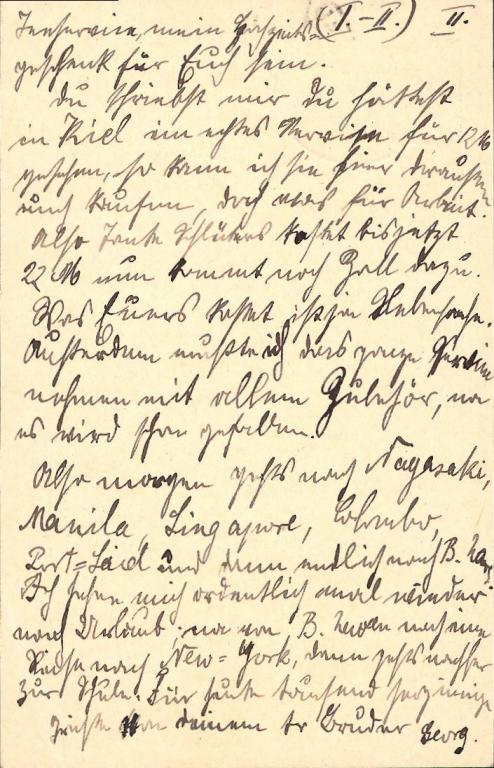 Teeservice, mein Hochzeits= (I.-II.) II.
geschenk für Euch sein.
Du schriebst mir Du hättest
in Kiel ein echtes Service für 12 M
gesehen, so kann ich sie hier draußen
nicht kaufen, doch was für Arbeit.
Also Tante Schlüters kostet bis jetzt
22 M nun kommt noch Zoll dazu.
Was Eures kostet ist ja Nebensache.
Außerdem mußte ich das ganze Service
nehmen mit allem Zubehör, na
es wird schon gefallen.
Also morgen gehts nach Nagasaki,
Manila, Singapore, Colombo,
Port=Said und dann endlich nach B. Haven.
Ich sehne mich ordentlich mal wieder
nach Urlaub; na von B. haven noch eine
Reise nach New=York, dann gehts nachher
zur Schule. Für heute tausend herzinnige
Grüße von deinem tr Bruder Georg.